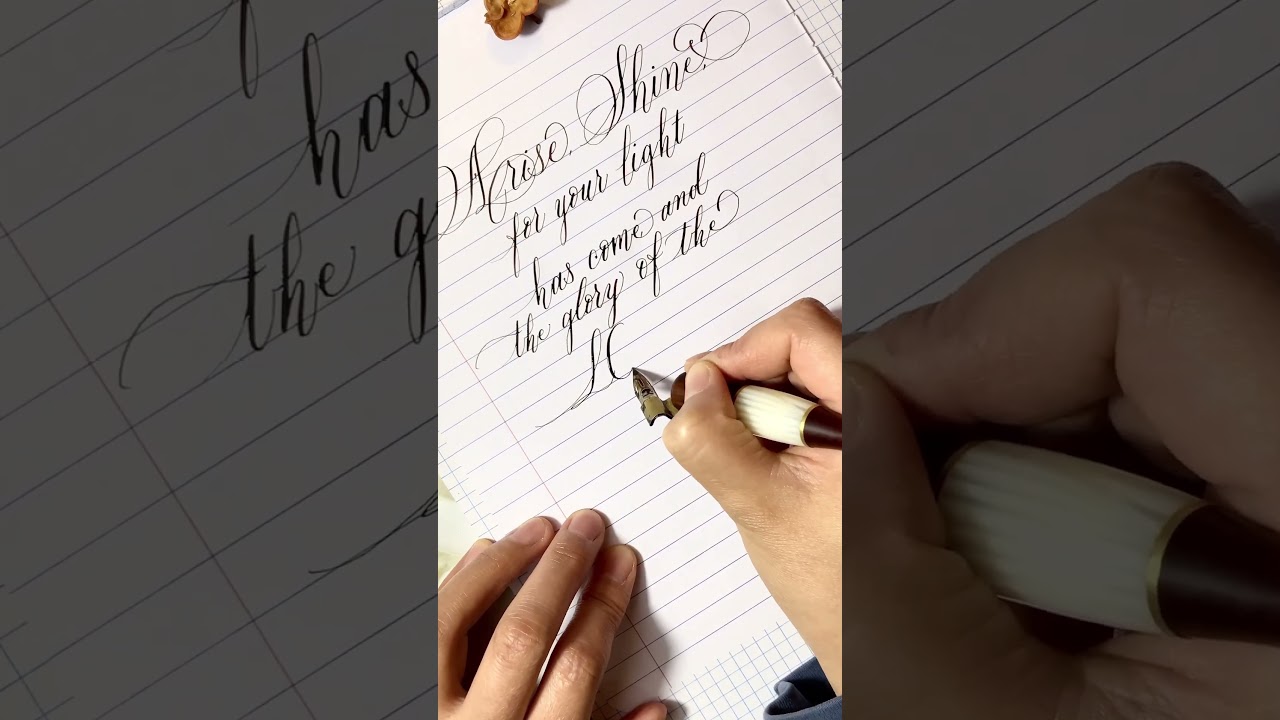 Arise, Shine,
for your light
has come and
the glory of the